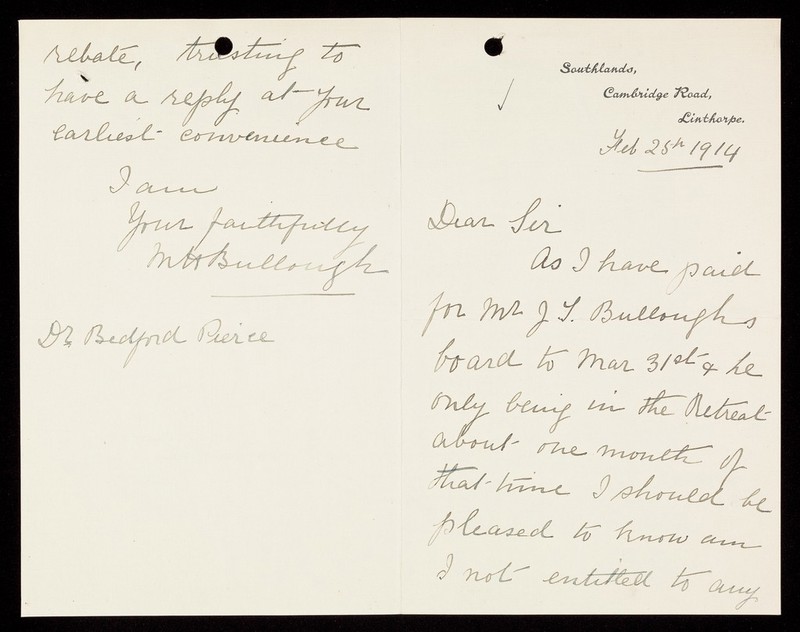 Southlands,
Cambridge Road,
Linthorpe.
Feb 25th 1914
Dear Sir
As I have paid
for Mr J. S. Bulloughs
board to Mar 31st & he
only being in the Retreat
about one month of
that time I should be
pleased to know am
I not entitled to any
rebate, trusting to
have a reply at your
earliest convenience
I am
Your faithfully
MH Bullough
Dr. Bedford Pierce